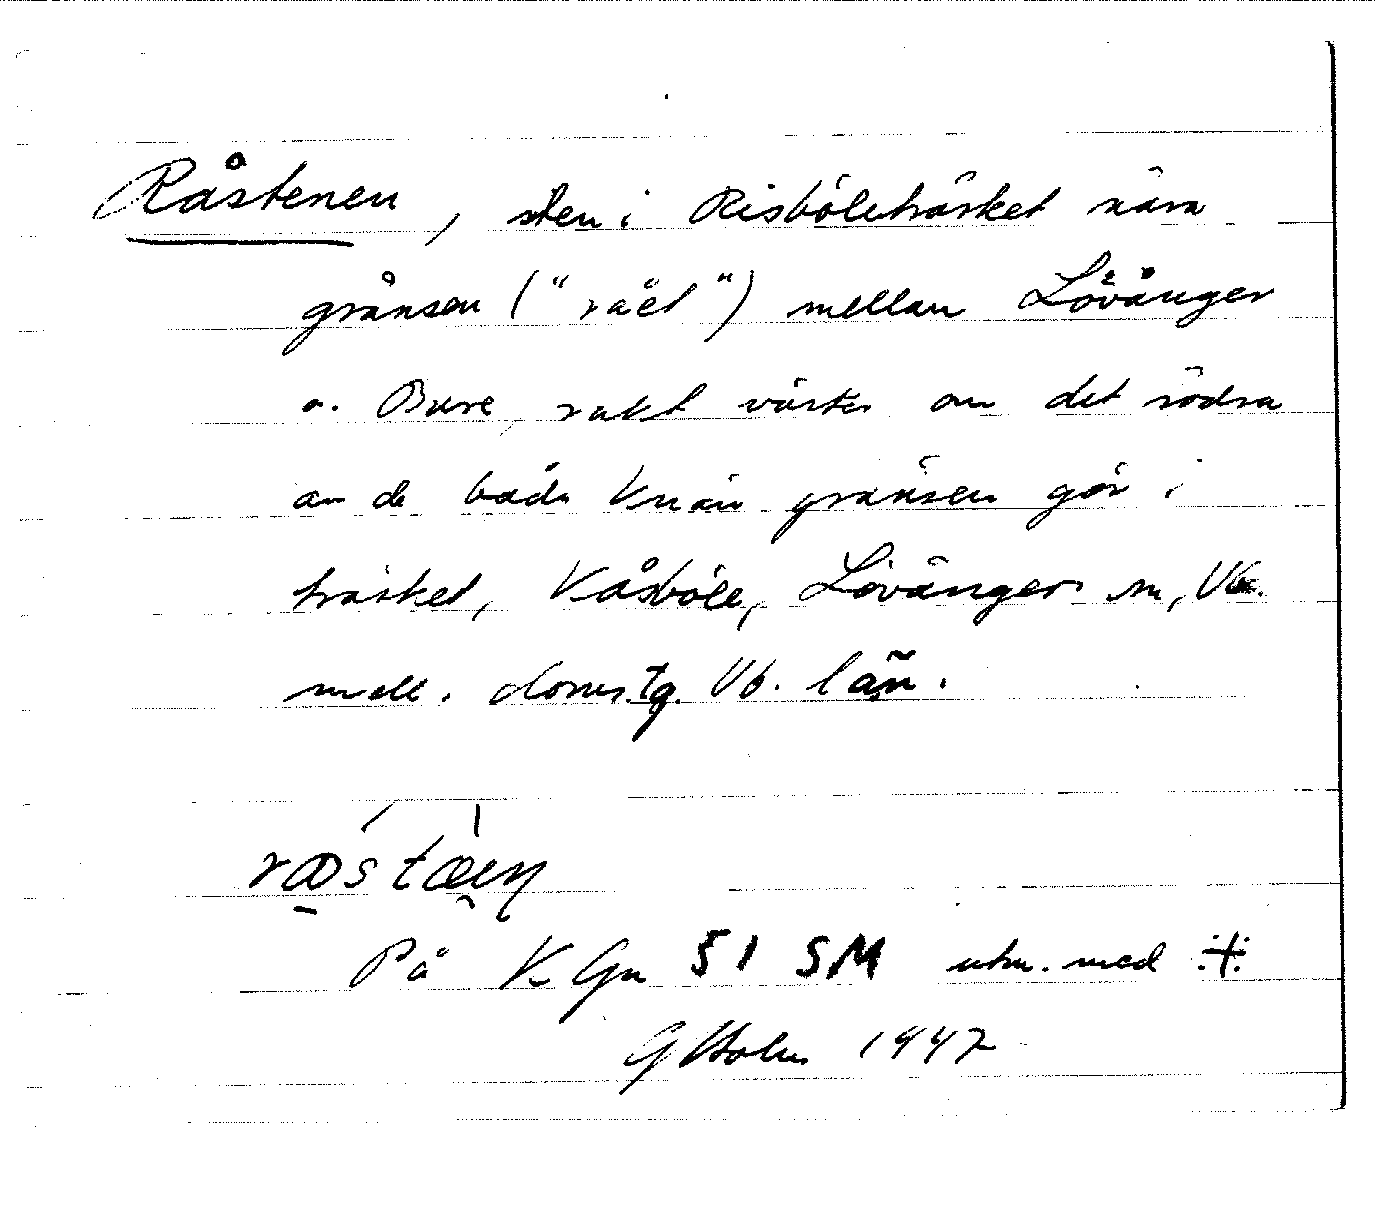 Råstenen, sten i Risböleträsket nära
gränsen ("råët") mellan Lövånger
o. Bure, rakt väster om det södra
av de båda knän gränsen gör i
träsket, Kåsböle, Lövångers sn, Vb.
mell. doms.tg. Vb. län.
På K Gn 51 SM utm. med
GHolm 1947